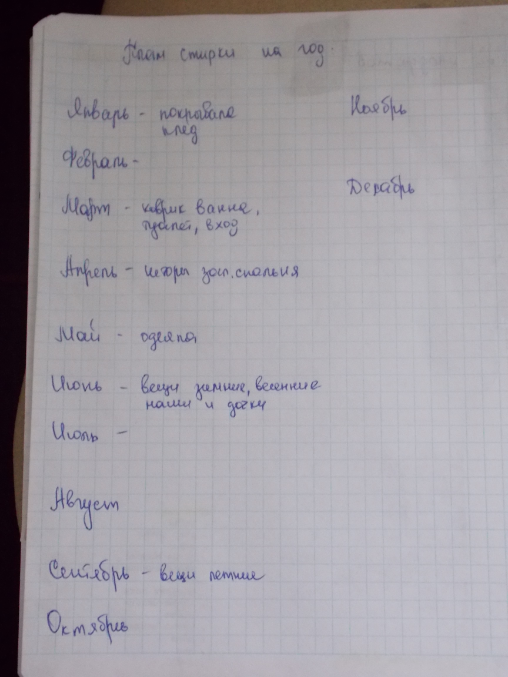 План стирки на год.
Январь - покрывала
плед
Февраль -
Март - коврик ванна,
туалет, вход
Апрель - шторы зал, спальня
Май - одеяла
Июнь - вещи зимние, весенние
наши и дочки
Июль -
Август
Сентябрь - вещи летние
Октябрь
Ноябрь
Декабрь